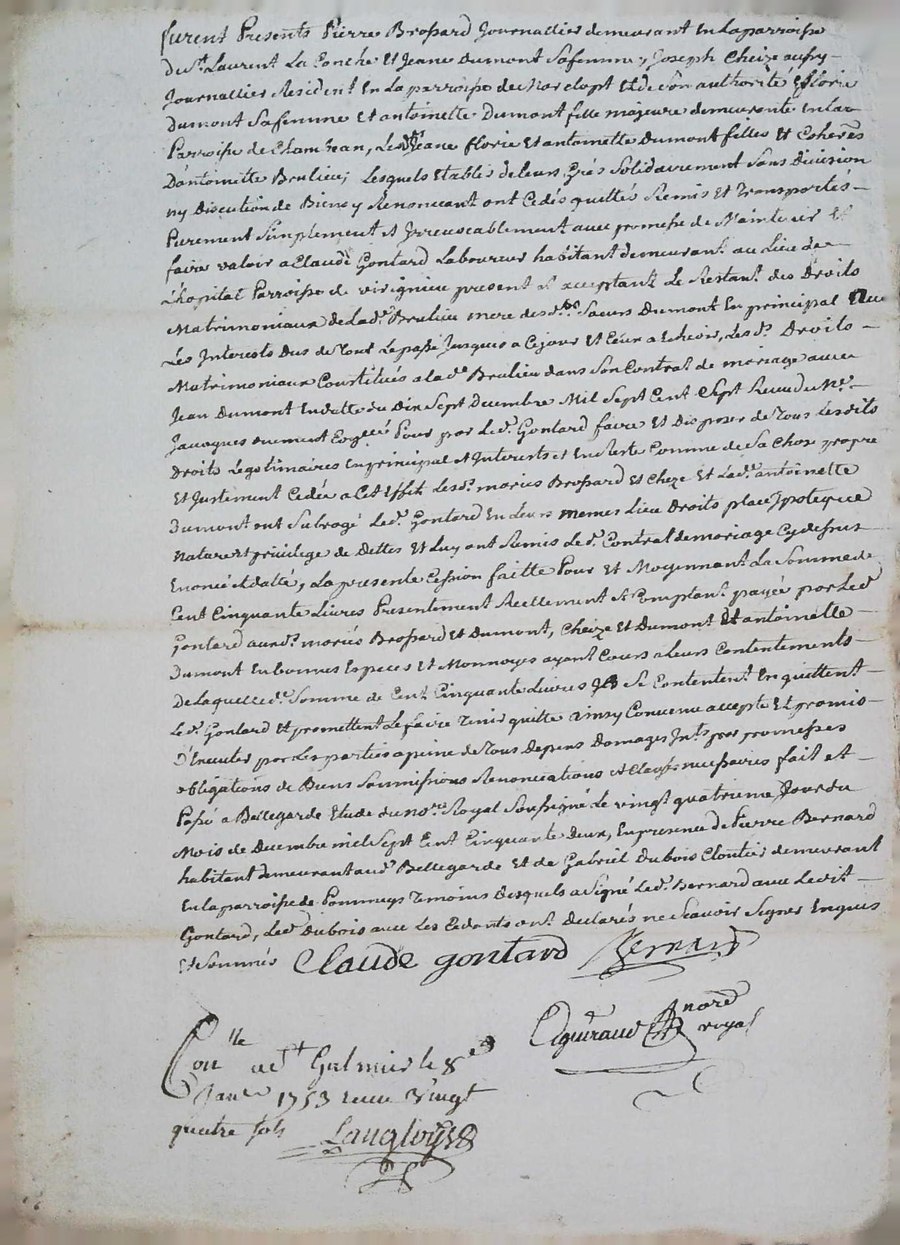 furent Presents Pierre Brossard Journallier demeurant En la parroisse
du St. Laurent La Conche Et Jeane Dumont Sa femme, Joseph Cheize aussy
Journallier Resident En la parroisse de Et de Son authorité florie
Dumont Sa femme Et antoinette Dumont fille majeure demeurante En la
Parroise de Chambean, Lesdtes Jeane florie Et antoinette Dumont filles Et Coherères
D'antoinette Brulieu; Lesquels Etablis de leurs Grés Solidairement Sans division
ny Discution de Biens y Renoncant ont Cedés quittés Remis Et Transportés
Purement Simplement Et Irrevocablement avec promesse de Maintenir Et
faire valoir a Claude Gontard Laboureur habitant demeurant au Lieu de
L'hopital Parroisse de virignieu present Et acceptant Le Restant des Droits
Matrimoniaux de Lade. Brulieu mere desdtes Saeurs Dumont En principal avec
Les Interests Dus de Tout Le passé Jusques a Ce jour Et Ceux a Echoir, Lesds. Droits
Matrimoniaux Constitués a lade Brulieu dans Son Contrat de mariage avec
Jean Dumont En datte du Dix Sept Decembre Mil Sept Cent Sept Receu du Nre.
Jacoques Pour par Led. Gontard faire Et Disposer de Tous Lesdits
Droits Legitimaires En principal Et Interests et En Reste Comme de Sa Chose propre
Et Justement Cedée a Cet Effet Lesds. mariés Brossard Et Cheze Et Lade. antoinette
Dumont ont Subrogé Led. Gontard En Leurs memes Lieu Droits place Ipoteque
Nature Et privilege de Dettes Et Luy ont Remis Led. Contrat de mariage Cy dessus
Enoncé Et datté, La presente Cession faitte Pour Et Moyennant La Somme de
Cent Cinquante Livres Presentement Reellement Et Comptant payée par Led
Gontard auxds. mariés Brossard Et Dumont, Cheize Et Dumont Et antoinette
Dumont En bonnes Especes Et Monnoyes ayant Cours a Leurs Contentements
De Laquelle de. Somme de Cent Cinquante Livres Ils Se Contentent En quittent
Led. Gontard Et promettent Le faire Tenir quitte ainsy Convenu accepte Et promis
D'Executer par Les parties a peine de Tous Depens Domages Ints. par promesses
obligations de Biens Soumissions Renonciations et Clauses necessaires fait et
Passé a Bellegarde Etude du nore. Royal Soussigné Le vingt quatrieme Jour du
Mois de Decembre mil Sept Cent Cinquante Deux, En presence de Pierre Bernard
habitant demeurant aud. Bellegarde Et de Gabriel Dubois Cloutier demeurant
En la parroisse de Pommeys Temoins Desquels a Signé Led. Bernard avec Ledit
Gontard, Led Dubois avec Les Cedants ont Declarés ne Scavoir Signer Enquis
Et Sommés Claude gontard Bernard
nore royal
Conlle a St Galmier le 8e
Janer 1753 receu vingt
quatre sols Langlois